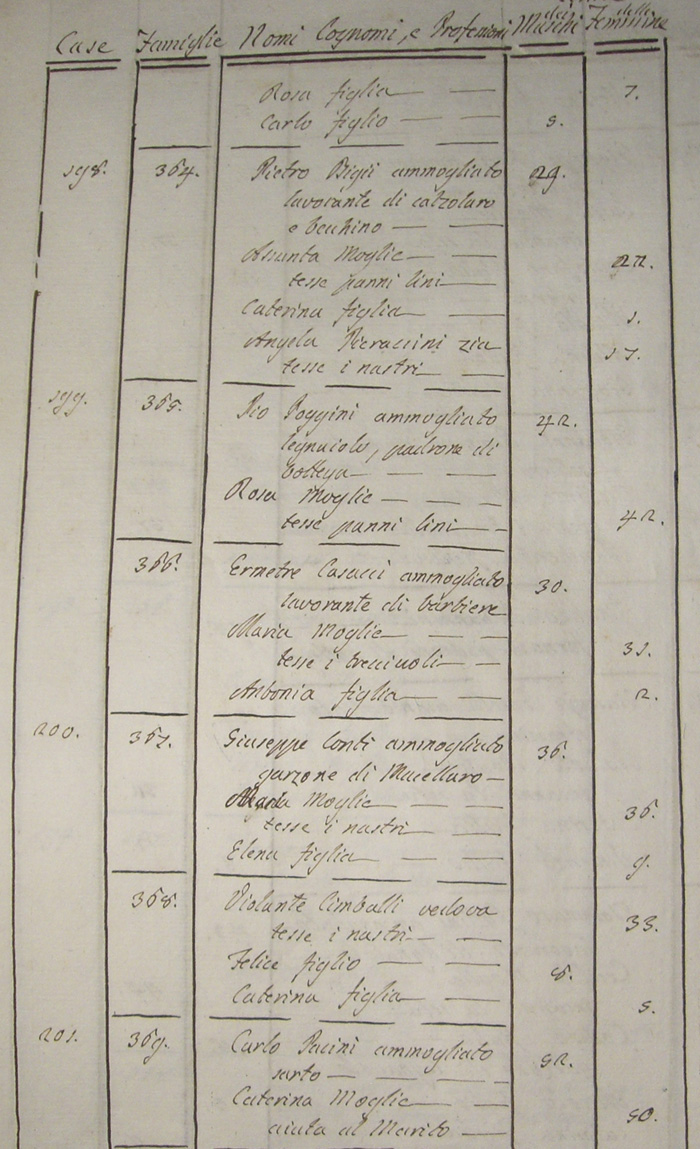 Case Famiglie Nomi Cognomi, e Professioni Maschi Femmine
Rosa figlia 7.
Carlo figlio 5.
198. 364. Pietro Bigii ammogliato 29.
lavorante di calzolaro
e becchino
Assunta Moglie 22.
tesse panni lini
Caterina figlia 1.
Angela Pieraccini zia 57.
tesse i nastri
199. 365. Pio Poggini ammogliato 42.
legnaiolo, padrone di
bottega
Rosa Moglie
tesse panni lini 42.
366. Ermetre Casacci ammogliato 30.
lavorante di barbiere
Maria Moglie 31.
tesse i trecciuoli
Antonia figlia 2.
200. 367. Giuseppe Conti ammogliato 36.
garzone di Macellaro
Moglie 36.
tesse i nastri
Elena figlia 9.
368. Violante Cimballi vedova 33.
tesse i nastri
Felice figlio 8.
Caterina figlia 5.
201. 369. Carlo Pacini ammogliato 52.
sarto
Caterina Moglie 50.
aiuta al Marito